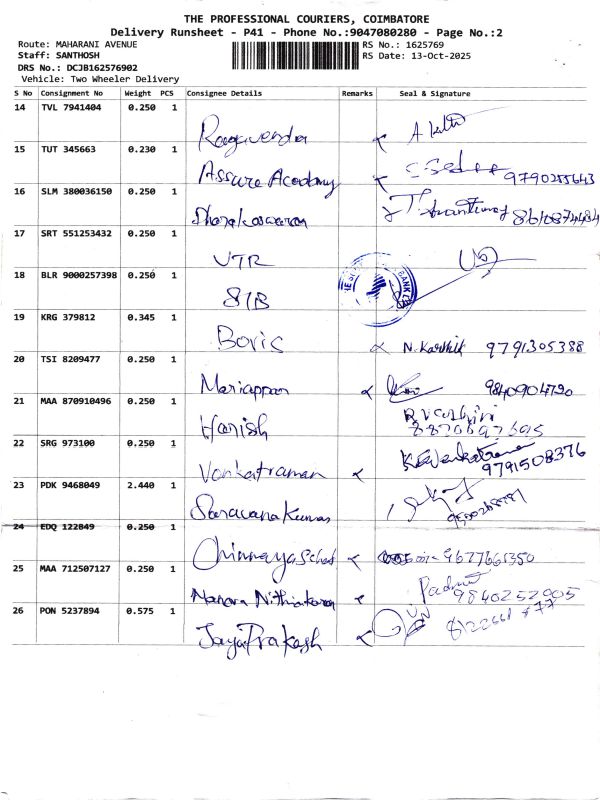 THE PROFESSIONAL COURIERS, COIMBATORE
Delivery Runsheet - P41 - Phone No.:9047080280 - Page No.:2
Route: MAHARANI AVENUE RS No.: 1625769
Staff: SANTHOSH RS Date: 13-Oct-2025
DRS No.: DCJB162576902
Vehicle: Two Wheeler Delivery
S No Consignment No Weight PCS Consignee Details Remarks Seal & Signature
14 TVL 7941404 0.250 1
Ragavendra
15 TUT 345663 0.230 1
Assure Academy 9790255643
16 SLM 380036150 0.250 1
17 SRT 551253432 0.250 1
UTR
18 BLR 9000257398 0.250 1
SIB
19 KRG 379812 0.345 1
Boris N. Karthik 9791305388
20 TSI 8209477 0.250 1
Mariappan 9840904720
21 MAA 870910496 0.250 1
Harish
22 SRG 973100 0.250 1
Venkatraman 9791508376
23 PDK 9468049 2.440 1
Saravana Kumar
24 EDQ 122849 0.250 1
9677661350
25 MAA 712507127 0.250 1
9840252905
26 PON 5237894 0.575 1
JayaPrakash